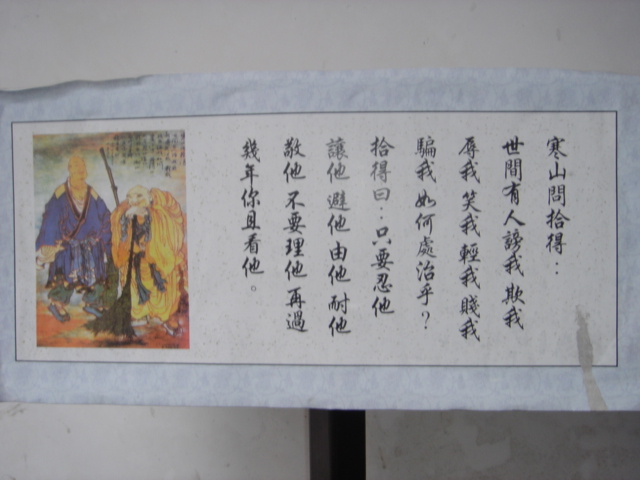 寒山問拾得：
世間有人謗我 欺我
辱我 笑我 輕我 賤我
騙我 如何處治乎？
拾得曰：只要忍他
讓他 避他 由他 耐他
敬他 不要理他 再過
幾年你且看他。